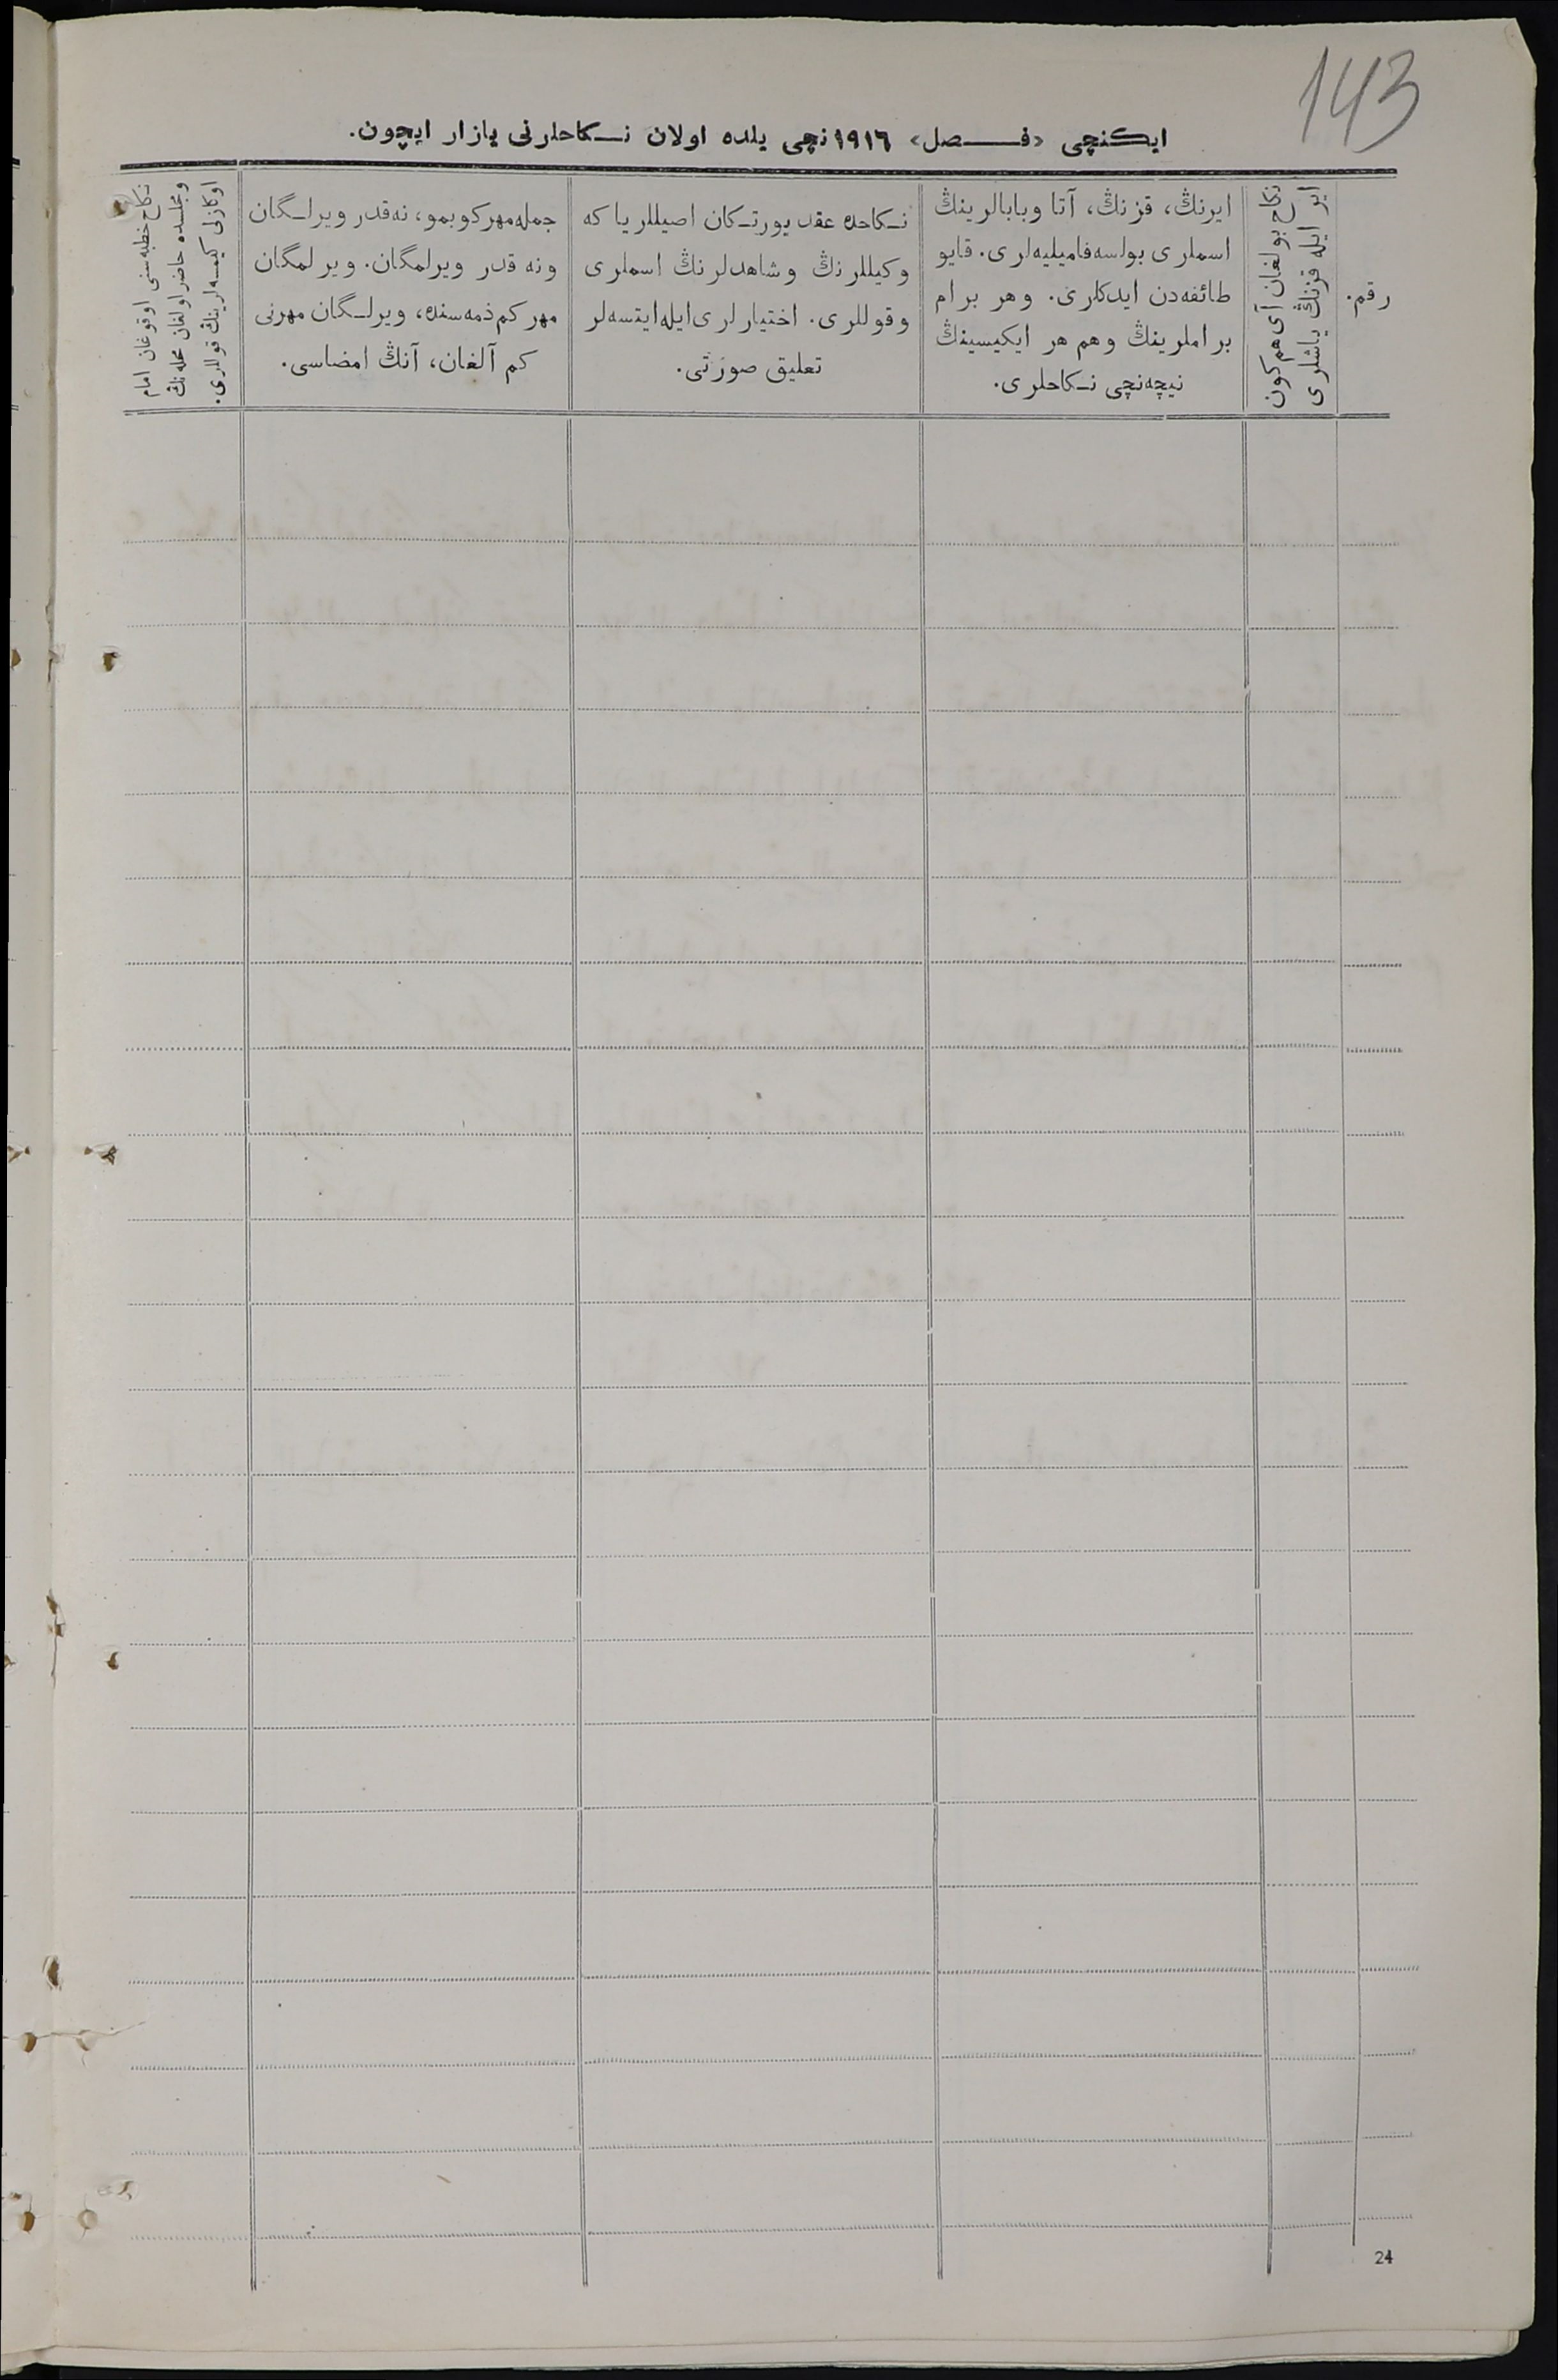 143
ایکنچی «فصل» ۱۹۱٦ نچی یلده اولان نکاحلرنی یازار ایچون.
رقم.
نکاح بولغان آی هم کون
ایر ایله قزنڭ یاشلری
ایرنڭ، قزنڭ، آتا وبابالرینڭ
اسملری بولسه فامیلیه‌لری. قایو
طائفه‌دن ایدکلری. وهر برام
براملرینڭ وهم هر ایکیسینڭ
نیچه‌نچی نکاحلری.
نکاحده عقد یورتکان اصیللر یا که
وکیللرنڭ وشاهدلرنڭ اسملری
وقوللری. اختیارلری ایله ایتسه‌لر
تعلیق صورتی.
جمله مهر کوبمو، نه‌قدر ویرلگان
ونه قدر ویرلمگان. ویرلمگان
مهر کم ذمه‌سنده، ویرلگان مهرنی
کم آلغان، آنڭ امضاسی.
نکاح خطبه‌سنی اوقوغان امام
ومجلسده حاضر اولغان محله‌نڭ
اوکازلی کیمسه‌لرینڭ قوللری.
24